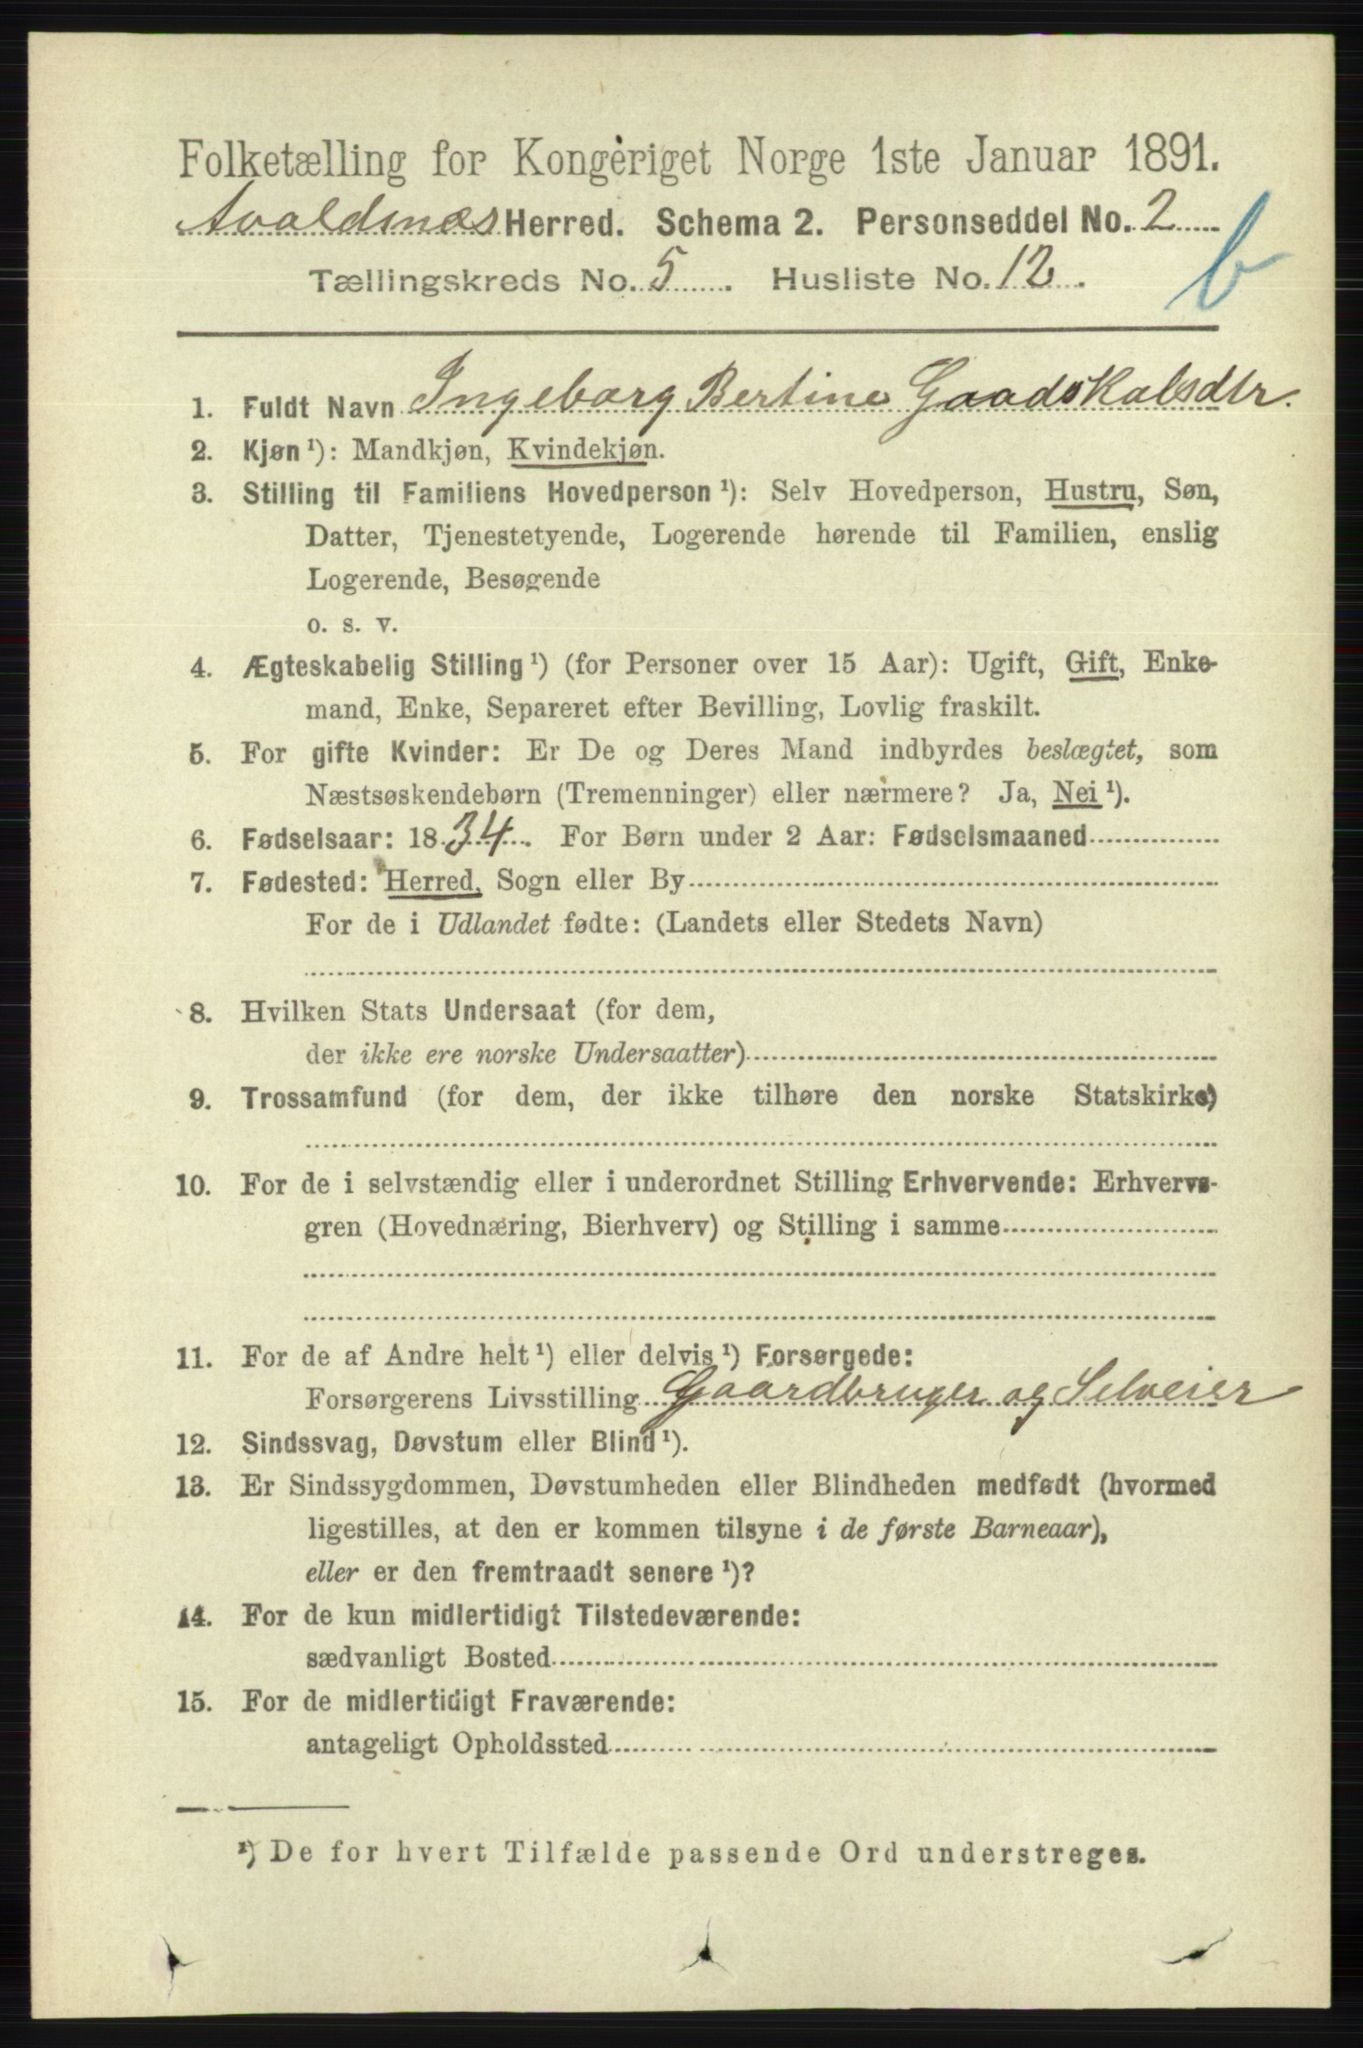 Folketælling for Kongeriget Norge 1ste Januar 1891.
Avaldsnes Herred. Schema 2. Personseddel No. 2
Tællingskreds No. 5. Husliste No. 12.
b
1. Fuldt Navn Ingeborg Bertine Gaadskalsdtr.
2. Kjøn ¹): Mandkjøn, Kvindekjøn.
3. Stilling til Familiens Hovedperson ¹): Selv Hovedperson, Hustru, Søn,
Datter, Tjenestetyende, Logerende hørende til Familien, enslig
Logerende, Besøgende
o. s. v.
4. Ægteskabelig Stilling ¹) (for Personer over 15 Aar): Ugift, Gift, Enke-
mand, Enke, Separeret efter Bevilling, Lovlig fraskilt.
5. For gifte Kvinder: Er De og Deres Mand indbyrdes beslægtet, som
Næstsøskendebørn (Tremenninger) eller nærmere? Ja, Nei ¹).
6. Fødselsaar: 1834. For Børn under 2 Aar: Fødselsmaaned
7. Fødested: Herred, Sogn eller By
For de i Udlandet fødte: (Landets eller Stedets Navn)
8. Hvilken Stats Undersaat (for dem,
der ikke ere norske Undersaatter)
9. Trossamfund (for dem, der ikke tilhøre den norske Statskirke)
10. For de i selvstændig eller i underordnet Stilling Erhvervende: Erhvervs-
gren (Hovednæring, Bierhverv) og Stilling i samme
11. For de af Andre helt ¹) eller delvis ¹) Forsørgede:
Forsørgerens Livsstilling Gaardbruger og Selveier
12. Sindssvag, Døvstum eller Blind ¹).
13. Er Sindssygdommen, Døvstumheden eller Blindheden medfødt (hvormed
ligestilles, at den er kommen tilsyne i de første Barneaar),
eller er den fremtraadt senere ¹)?
14. For de kun midlertidigt Tilstedeværende:
sædvanligt Bosted
15. For de midlertidigt Fraværende:
antageligt Opholdssted
¹) De for hvert Tilfælde passende Ord understreges.